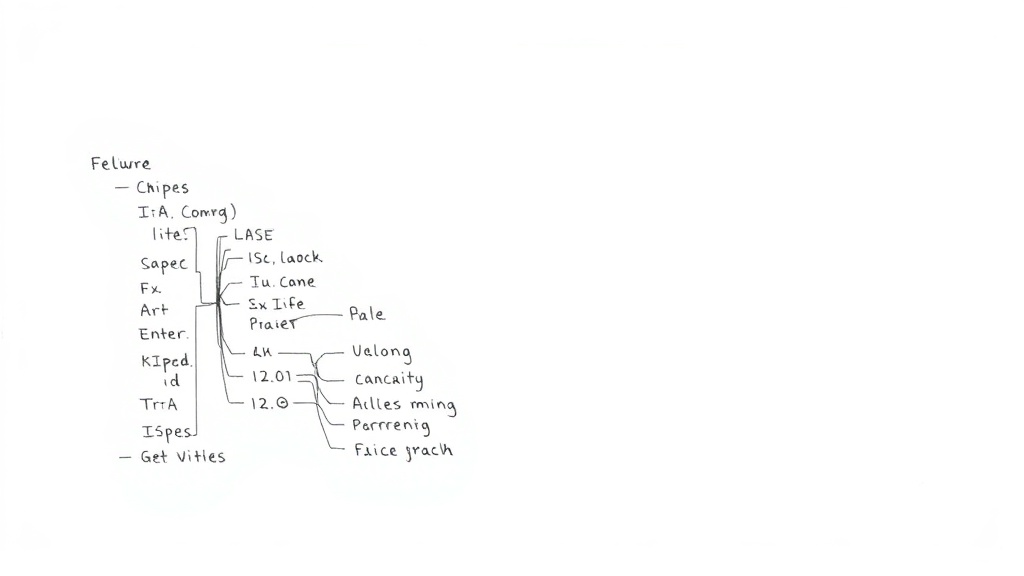 Felure
— Chipes
I:A. Comrg)
lite:
Sapec
Fx.
Art
Enter.
KIped.
id
TrrA
ISpes
— Get Vitles
LASE
ISc, laock
Iu. Cane
Ex Iife
Praier
Pale
12.01
Valong
cancaity
Ailles rming
Parrrenig
Flice grach